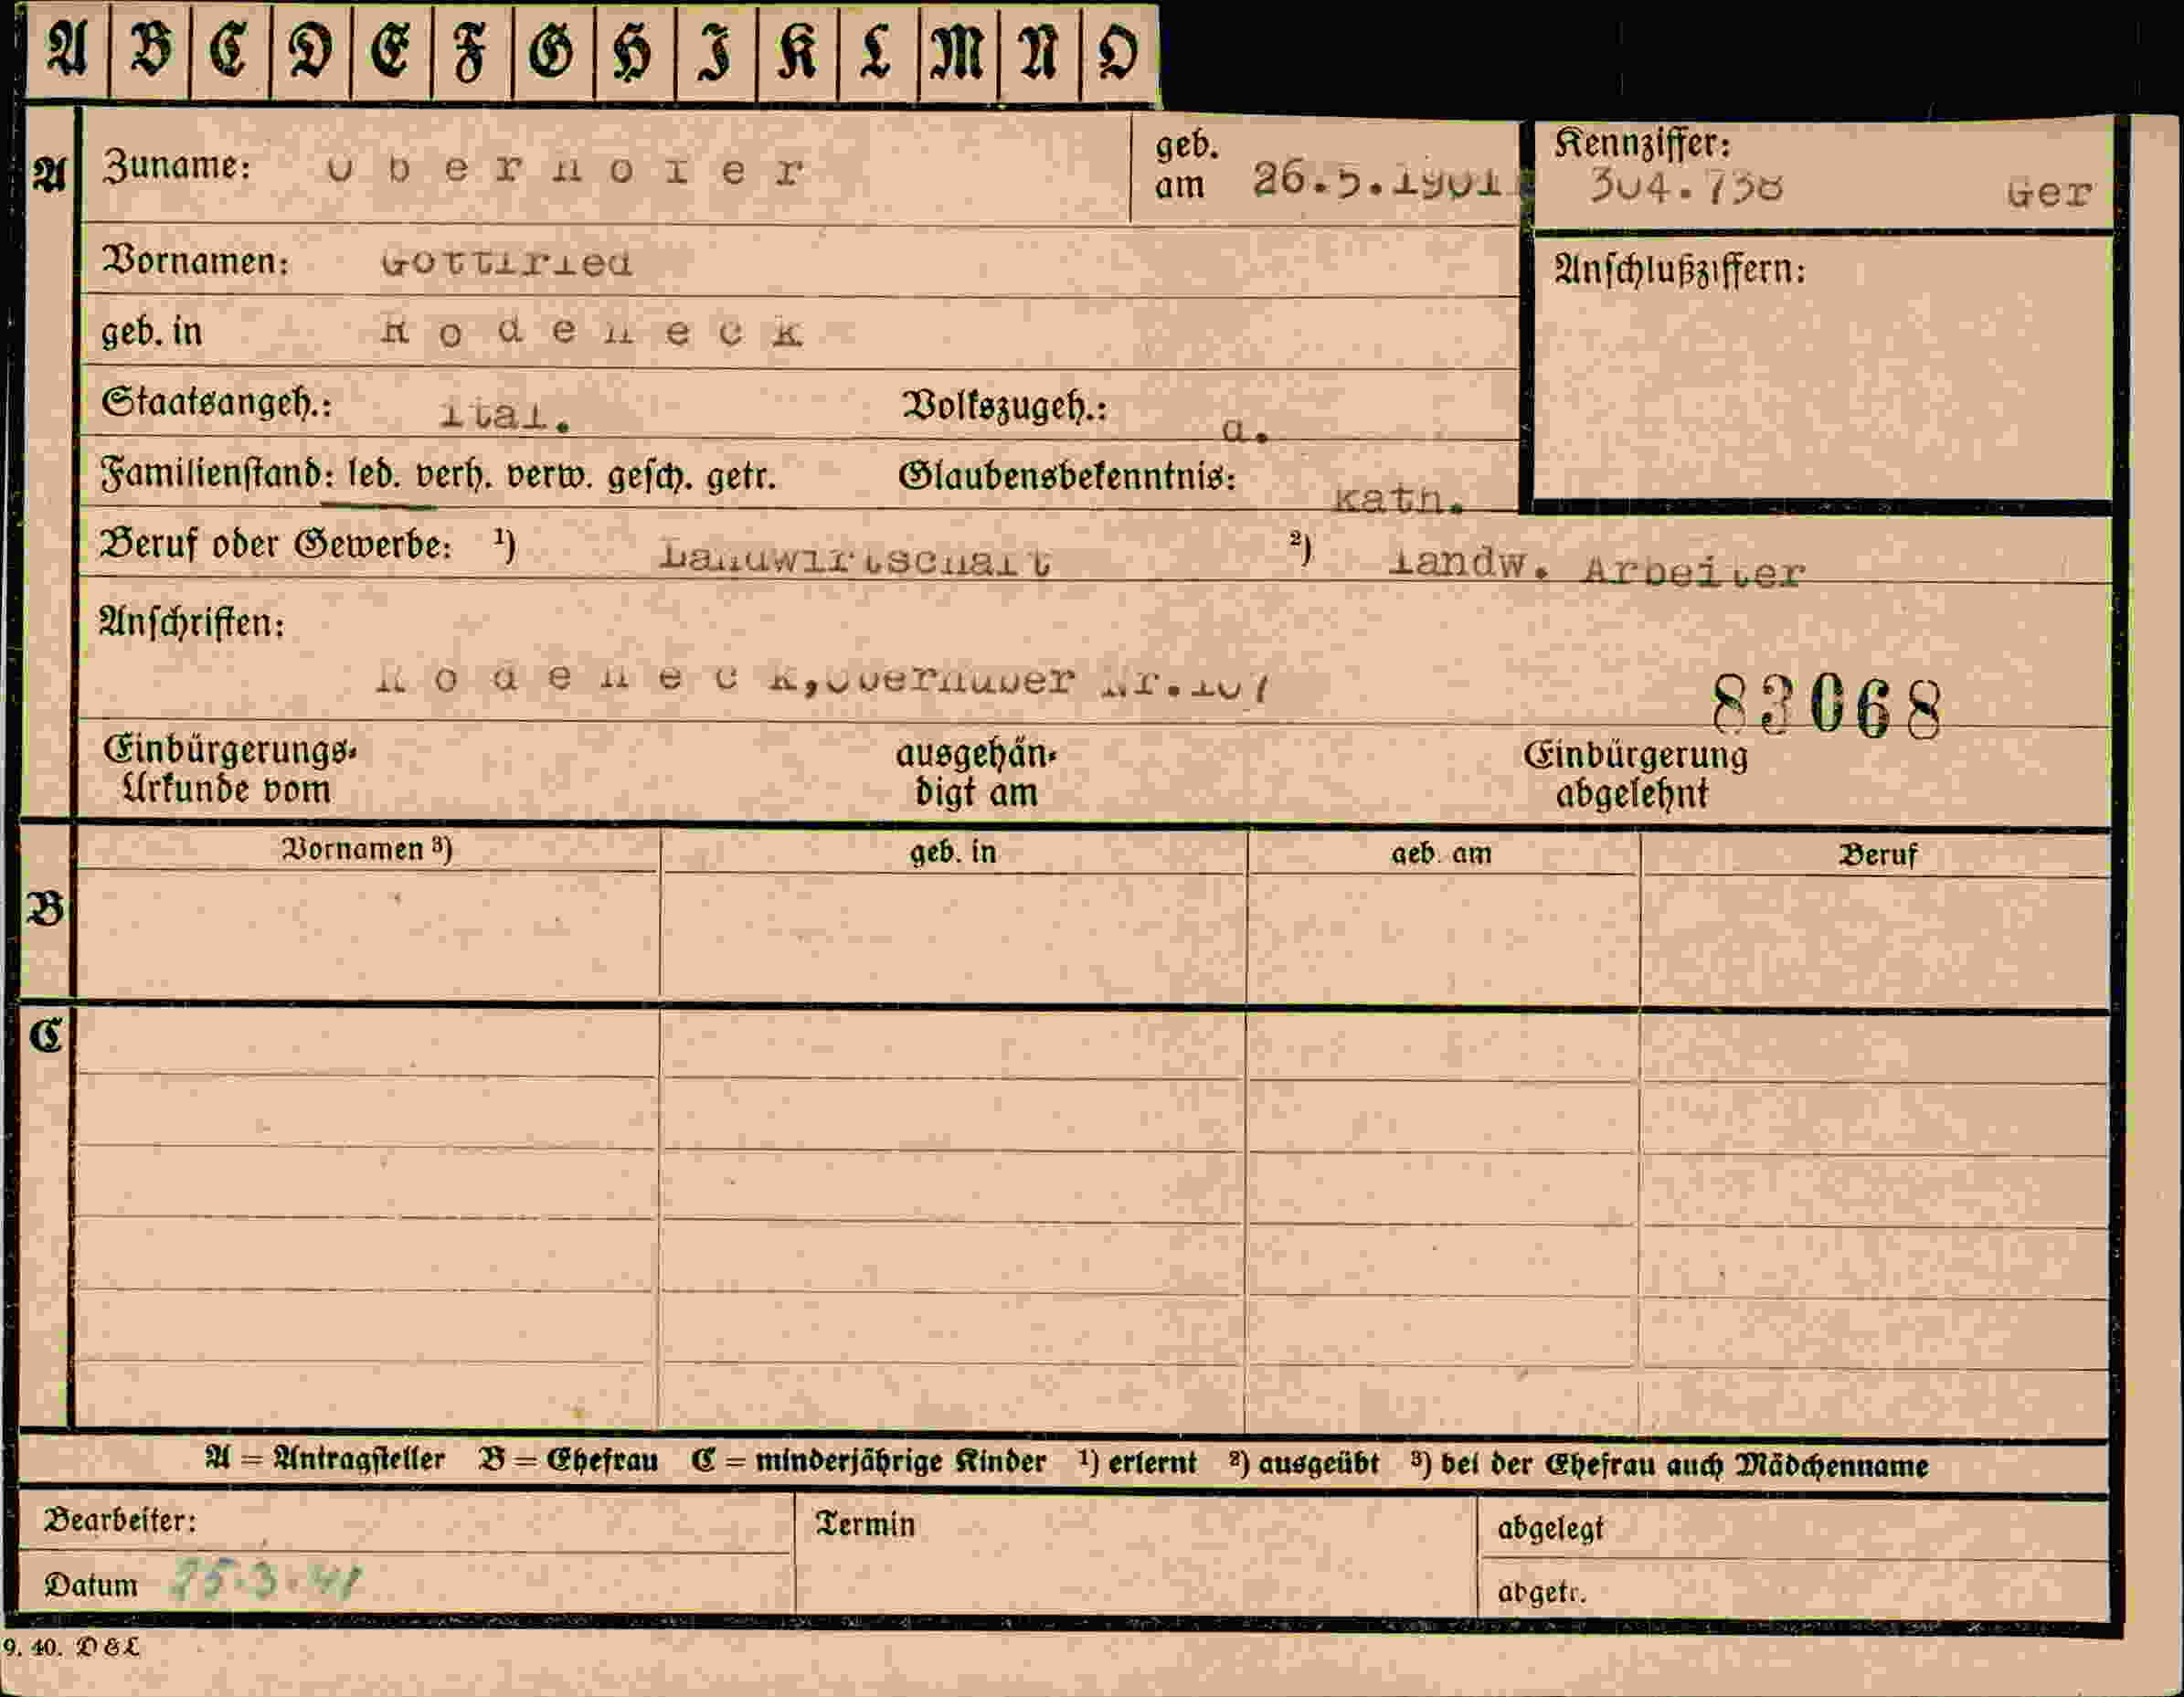 A B C D E F G H I K L M N O
A Zuname: O b e r h o f e r geb. am 26.5.1901 Kennziffer: 304.738 Ger
Vornamen: Gottfried Anschlußziffern:
geb. in R o d e n e c k
Staatsangeh.: ital. Volkszugeh.: d.
Familienstand: led. verh. verw. gesch. getr. Glaubensbekenntnis: kath.
Beruf oder Gewerbe: ¹) Landwirtschaft ²) landw. Arbeiter
Anschriften:
R o d e n e c k, Nr.107
83068
Einbürgerungs- ausgehän- Einbürgerung
Urkunde vom digt am abgelehnt
Vornamen ³) geb. in geb. am Beruf
B
C
A = Antragsteller B = Ehefrau C = minderjährige Kinder ¹) erlernt ²) ausgeübt ³) bei der Ehefrau auch Mädchenname
Bearbeiter: Termin abgelegt
Datum 25.3.41 abgetr.
9. 40. D&L